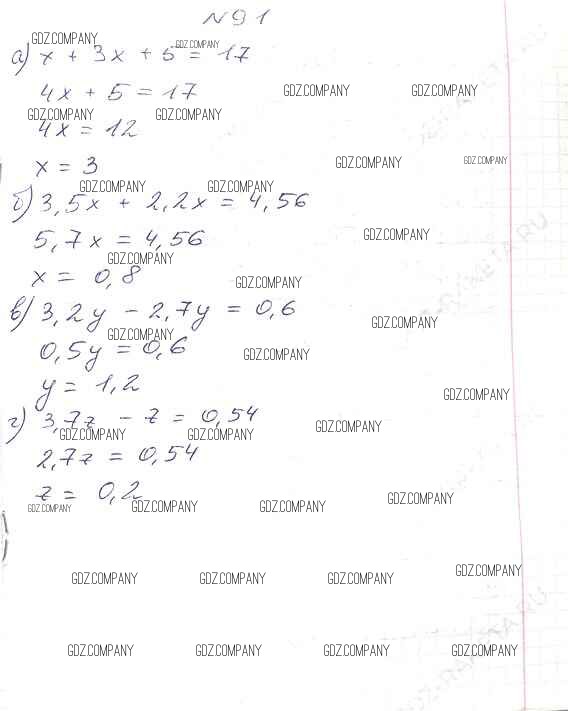 N 91
а) x + 3x + 5 = 17
4x + 5 = 17
4x = 12
x = 3
б) 3,5x + 2,2x = 4,56
5,7x = 4,56
x = 0,8
в) 3,2y - 2,7y = 0,6
0,5y = 0,6
y = 1,2
г) 3,7z - z = 0,54
2,7z = 0,54
z = 0,2
GDZ.COMPANY
GDZ.COMPANY
GDZ.COMPANY GDZ.COMPANY
GDZ.COMPANY GDZ.COMPANY
GDZ.COMPANY GDZ.COMPANY
GDZ.COMPANY GDZ.COMPANY
GDZ.COMPANY
GDZ.COMPANY
GDZ.COMPANY
GDZ.COMPANY
GDZ.COMPANY
GDZ.COMPANY
GDZ.COMPANY
GDZ.COMPANY GDZ.COMPANY GDZ.COMPANY
GDZ.COMPANY GDZ.COMPANY GDZ.COMPANY GDZ.COMPANY
GDZ.COMPANY GDZ.COMPANY GDZ.COMPANY GDZ.COMPANY
GDZ.COMPANY GDZ.COMPANY GDZ.COMPANY GDZ.COMPANY